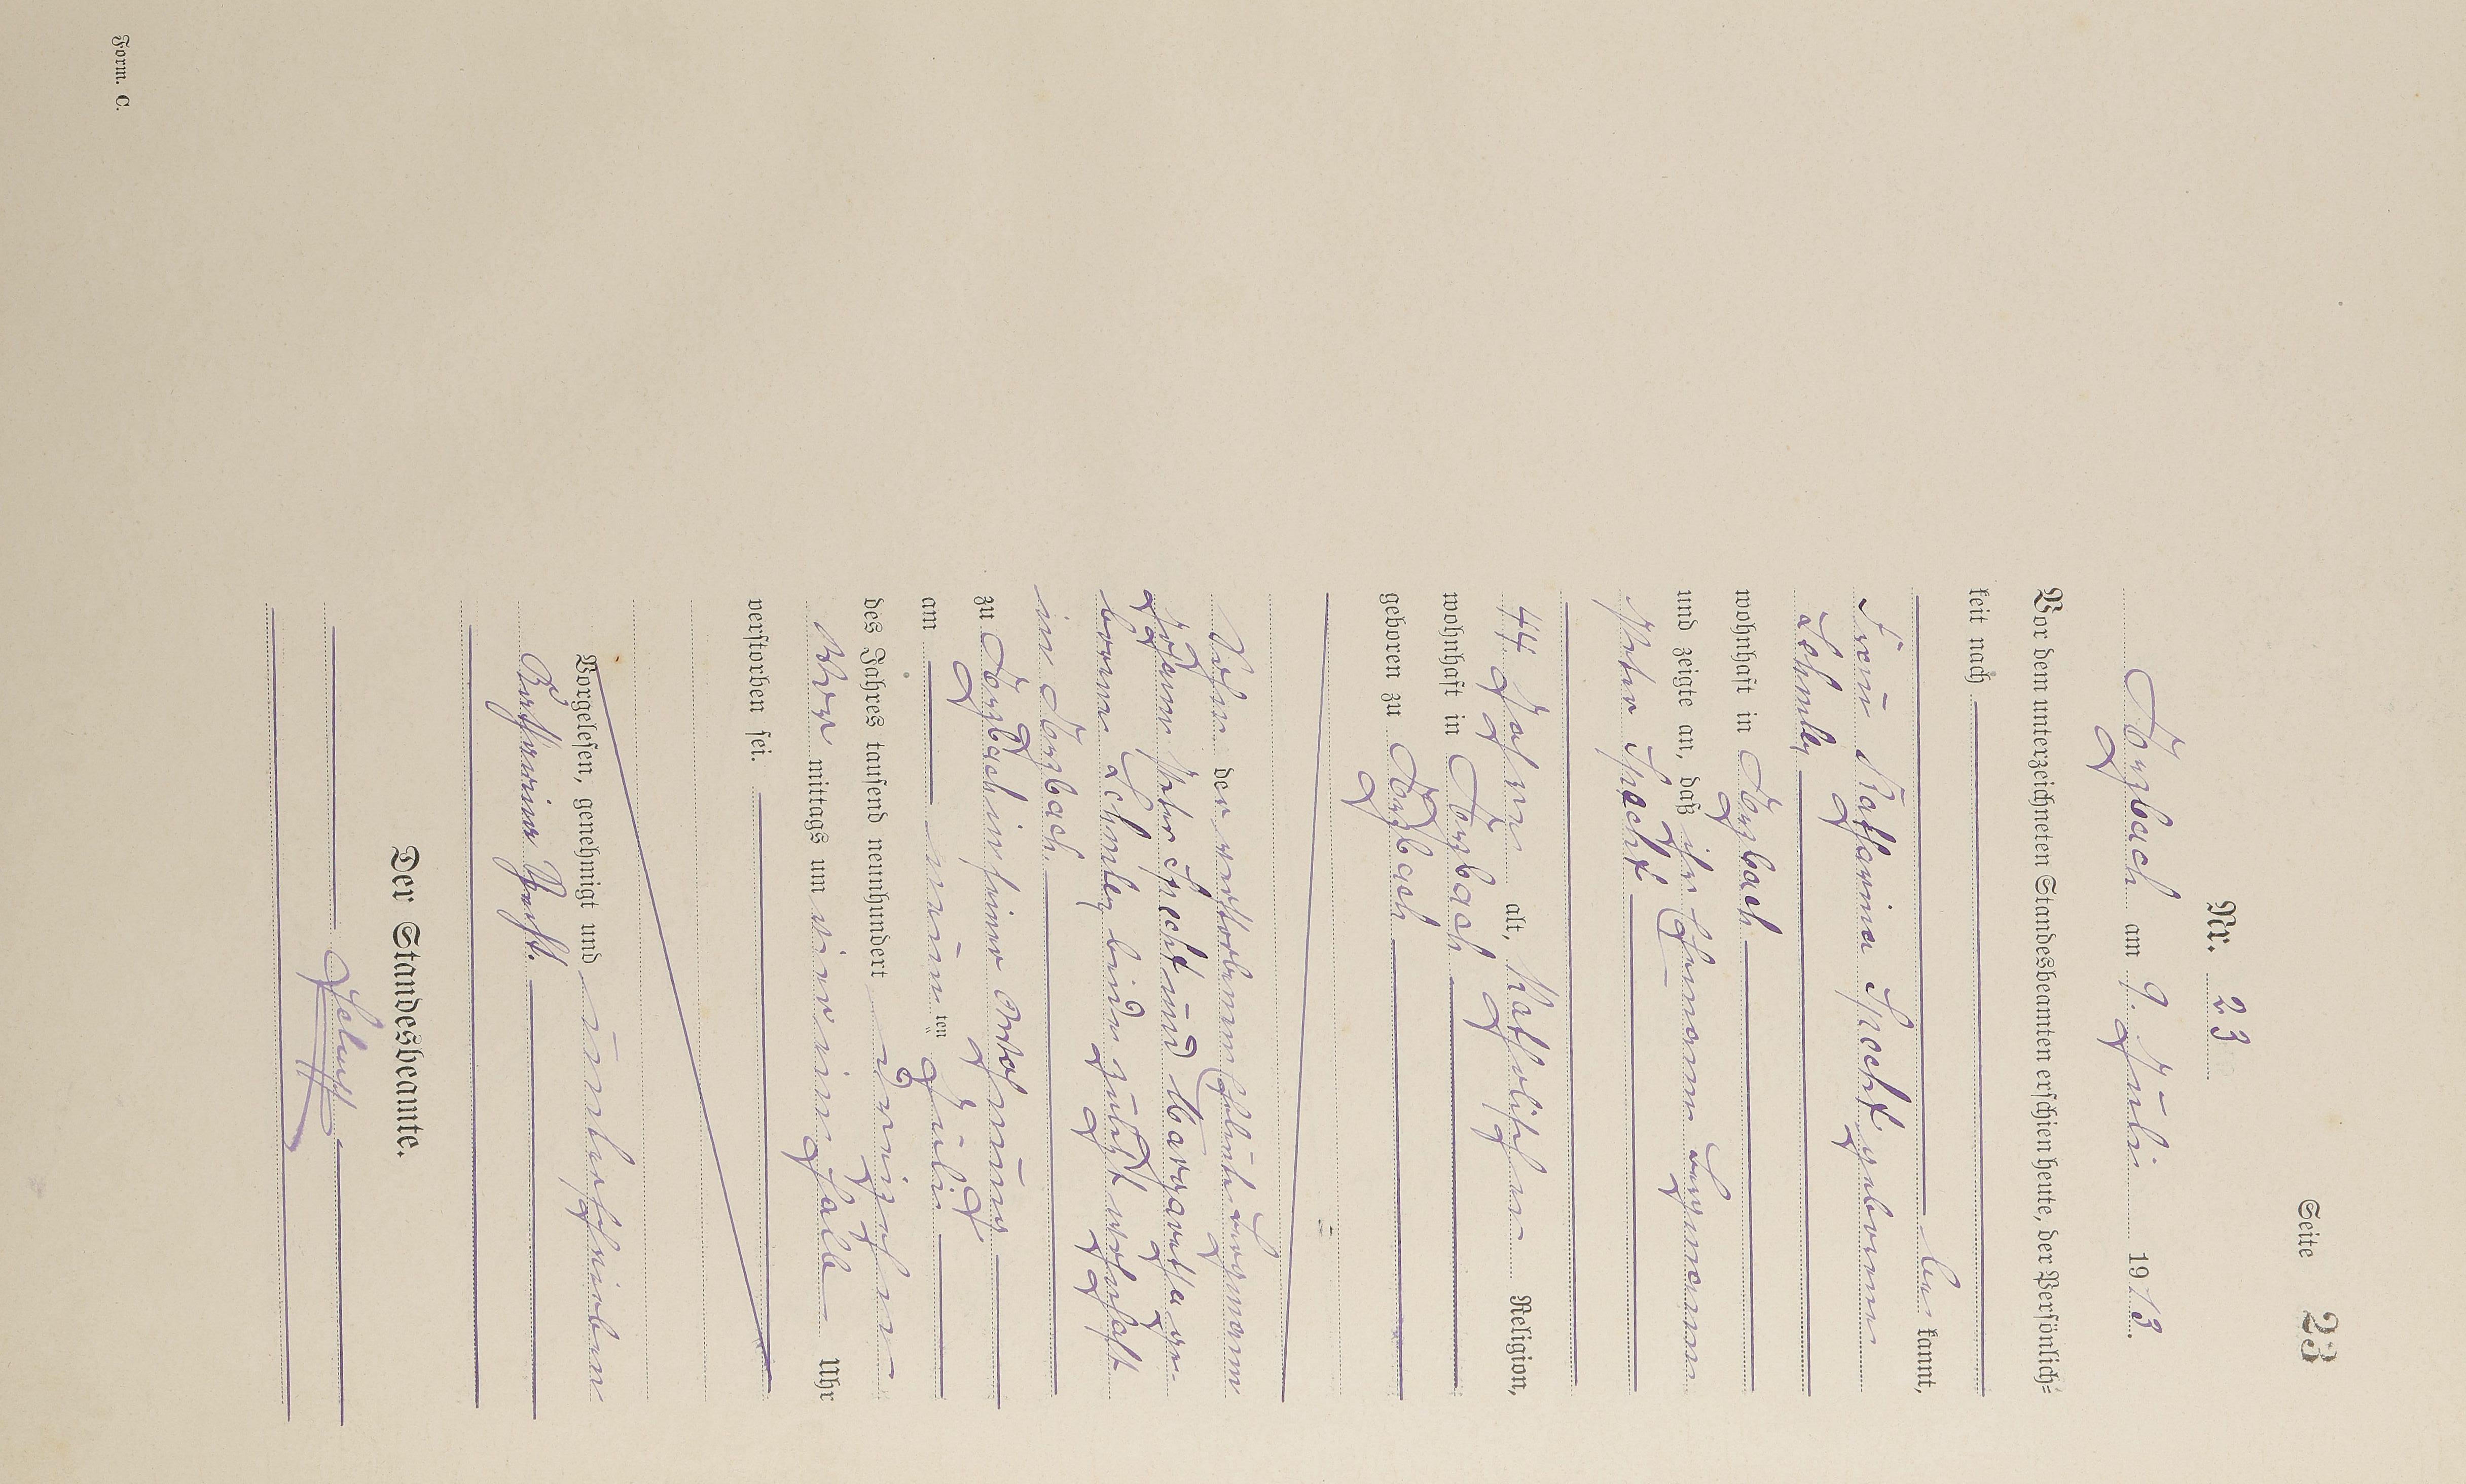 Seite 23
Nr. 23
Dorzbach am 9. Juli 1913.
Vor dem unterzeichneten Standesbeamten erschien heute, der Persönlich-
keit nach
be kannt,
Frau Katharina Specht geborene
Lehmler
wohnhaft in Dorzbach
und zeigte an, daß ihr Ehemann Bergmann
Peter Specht
44 Jahre alt, katholischer Religion,
wohnhaft in Dorzbach
geboren zu Dorzbach
Sohn der verstorbenen Eheleute Bergmann
Johann Peter Specht und Margaretha ge-
borene Lehmler, beide zuletzt wohnhaft
in Dorzbach.
zu Dorzbach in seiner
am neun ten Juli
des Jahres tausend neunhundert dreizehn
Vor mittags um Uhr
verstorben sei.
Vorgelesen, genehmigt und unterschrieben
Katharina Specht.
Der Standesbeamte.
Form. C.